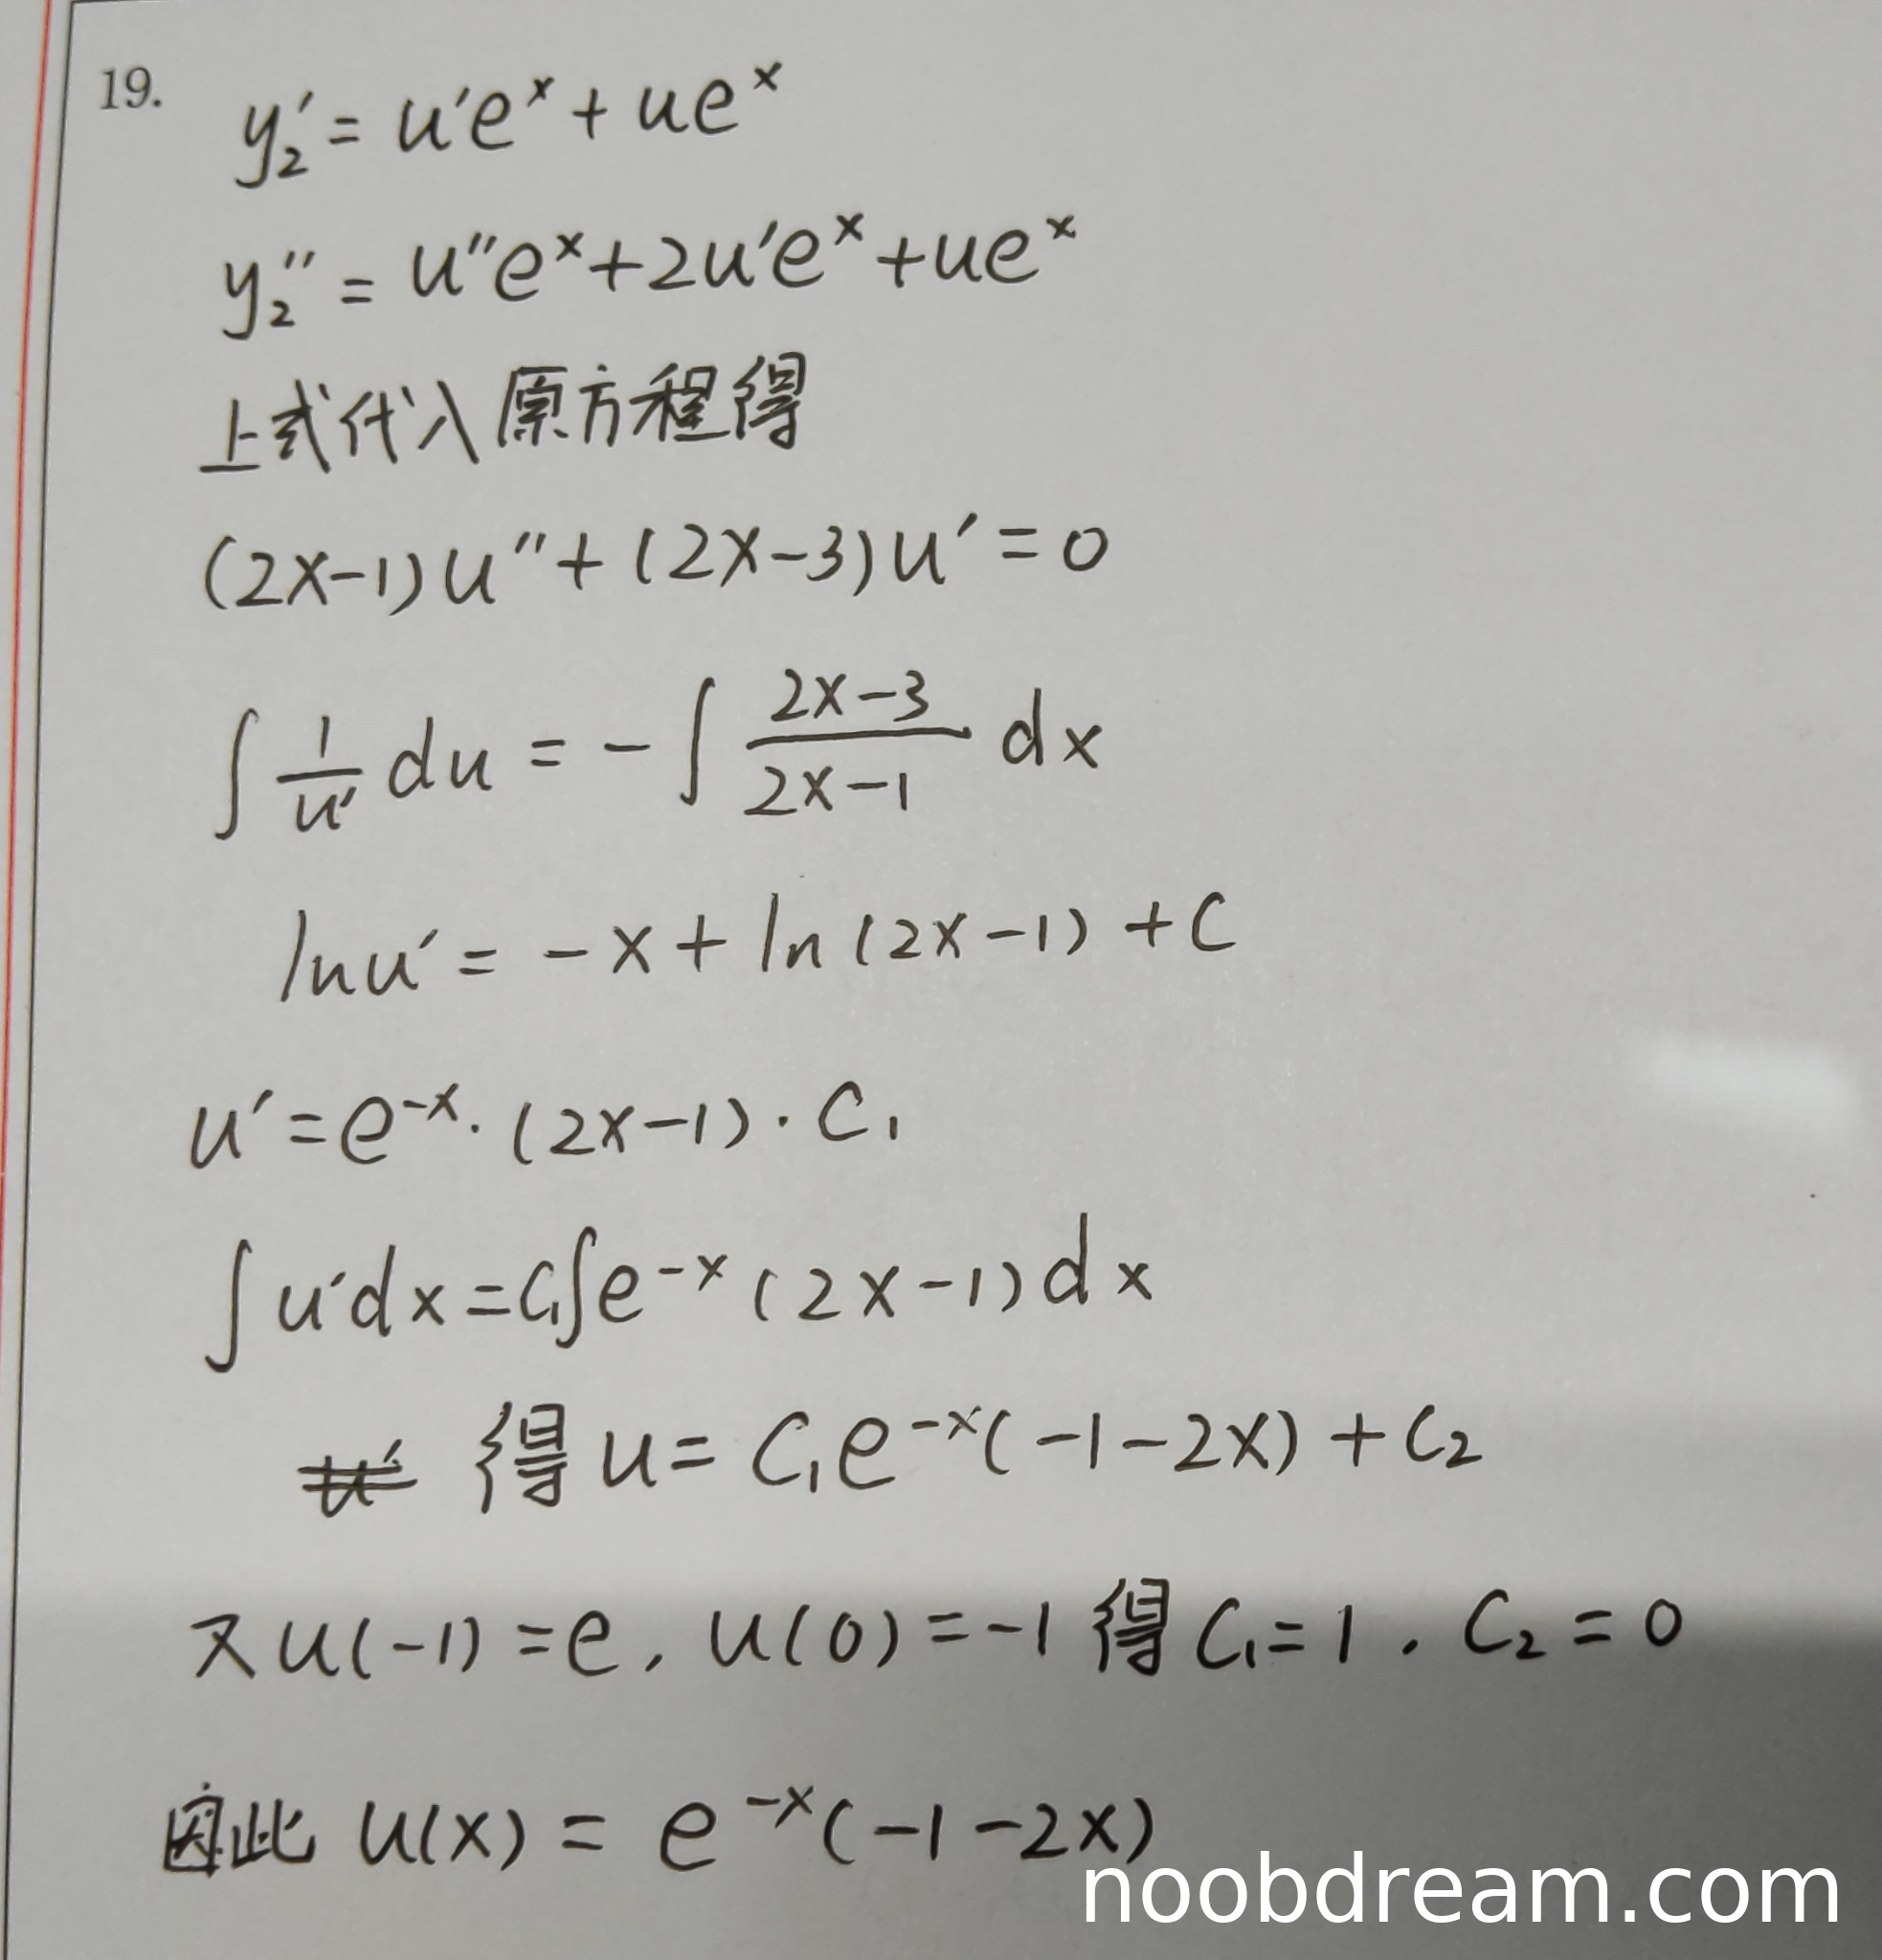 19.
y₂' = u'eˣ + ueˣ
y₂'' = u''eˣ + 2u'eˣ + ueˣ
上式代入原方程得
(2x-1)u'' + (2x-3)u' = 0
∫ 1/u' du = -∫ (2x-3)/(2x-1) dx
lnu' = -x + ln(2x-1) + C
u' = e⁻ˣ · (2x-1) · C₁
∫u'dx = C₁∫e⁻ˣ(2x-1)dx
u' 得 u = C₁e⁻ˣ(-1-2x) + C₂
又 u(-1) = e, u(0) = -1 得 C₁ = 1 . C₂ = 0
因此 u(x) = e⁻ˣ(-1-2x)
noobdream.com